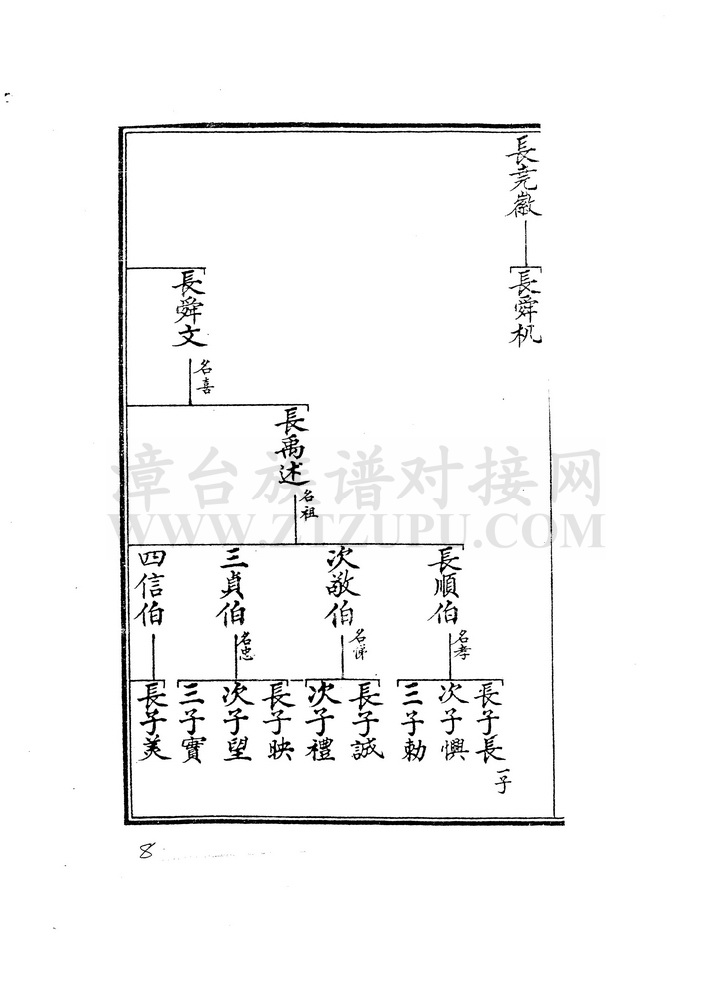 長堯徽
長舜机
長舜文
名喜
長禹述
名祖
長順伯
名孝
次敬伯
名悌
三貞伯
名忠
四信伯
長子長
一子
次子懊
三子勅
長子誠
次子禮
長子映
次子望
三子實
長子美
章台族谱对接网
WWW.ZTZUPU.COM
8